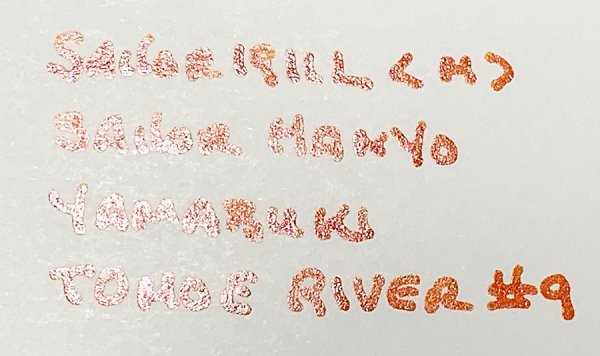 SAILOR 1911L <M>
SAILOR MANYO
YAMABUKI
TOMOE RIVER #9